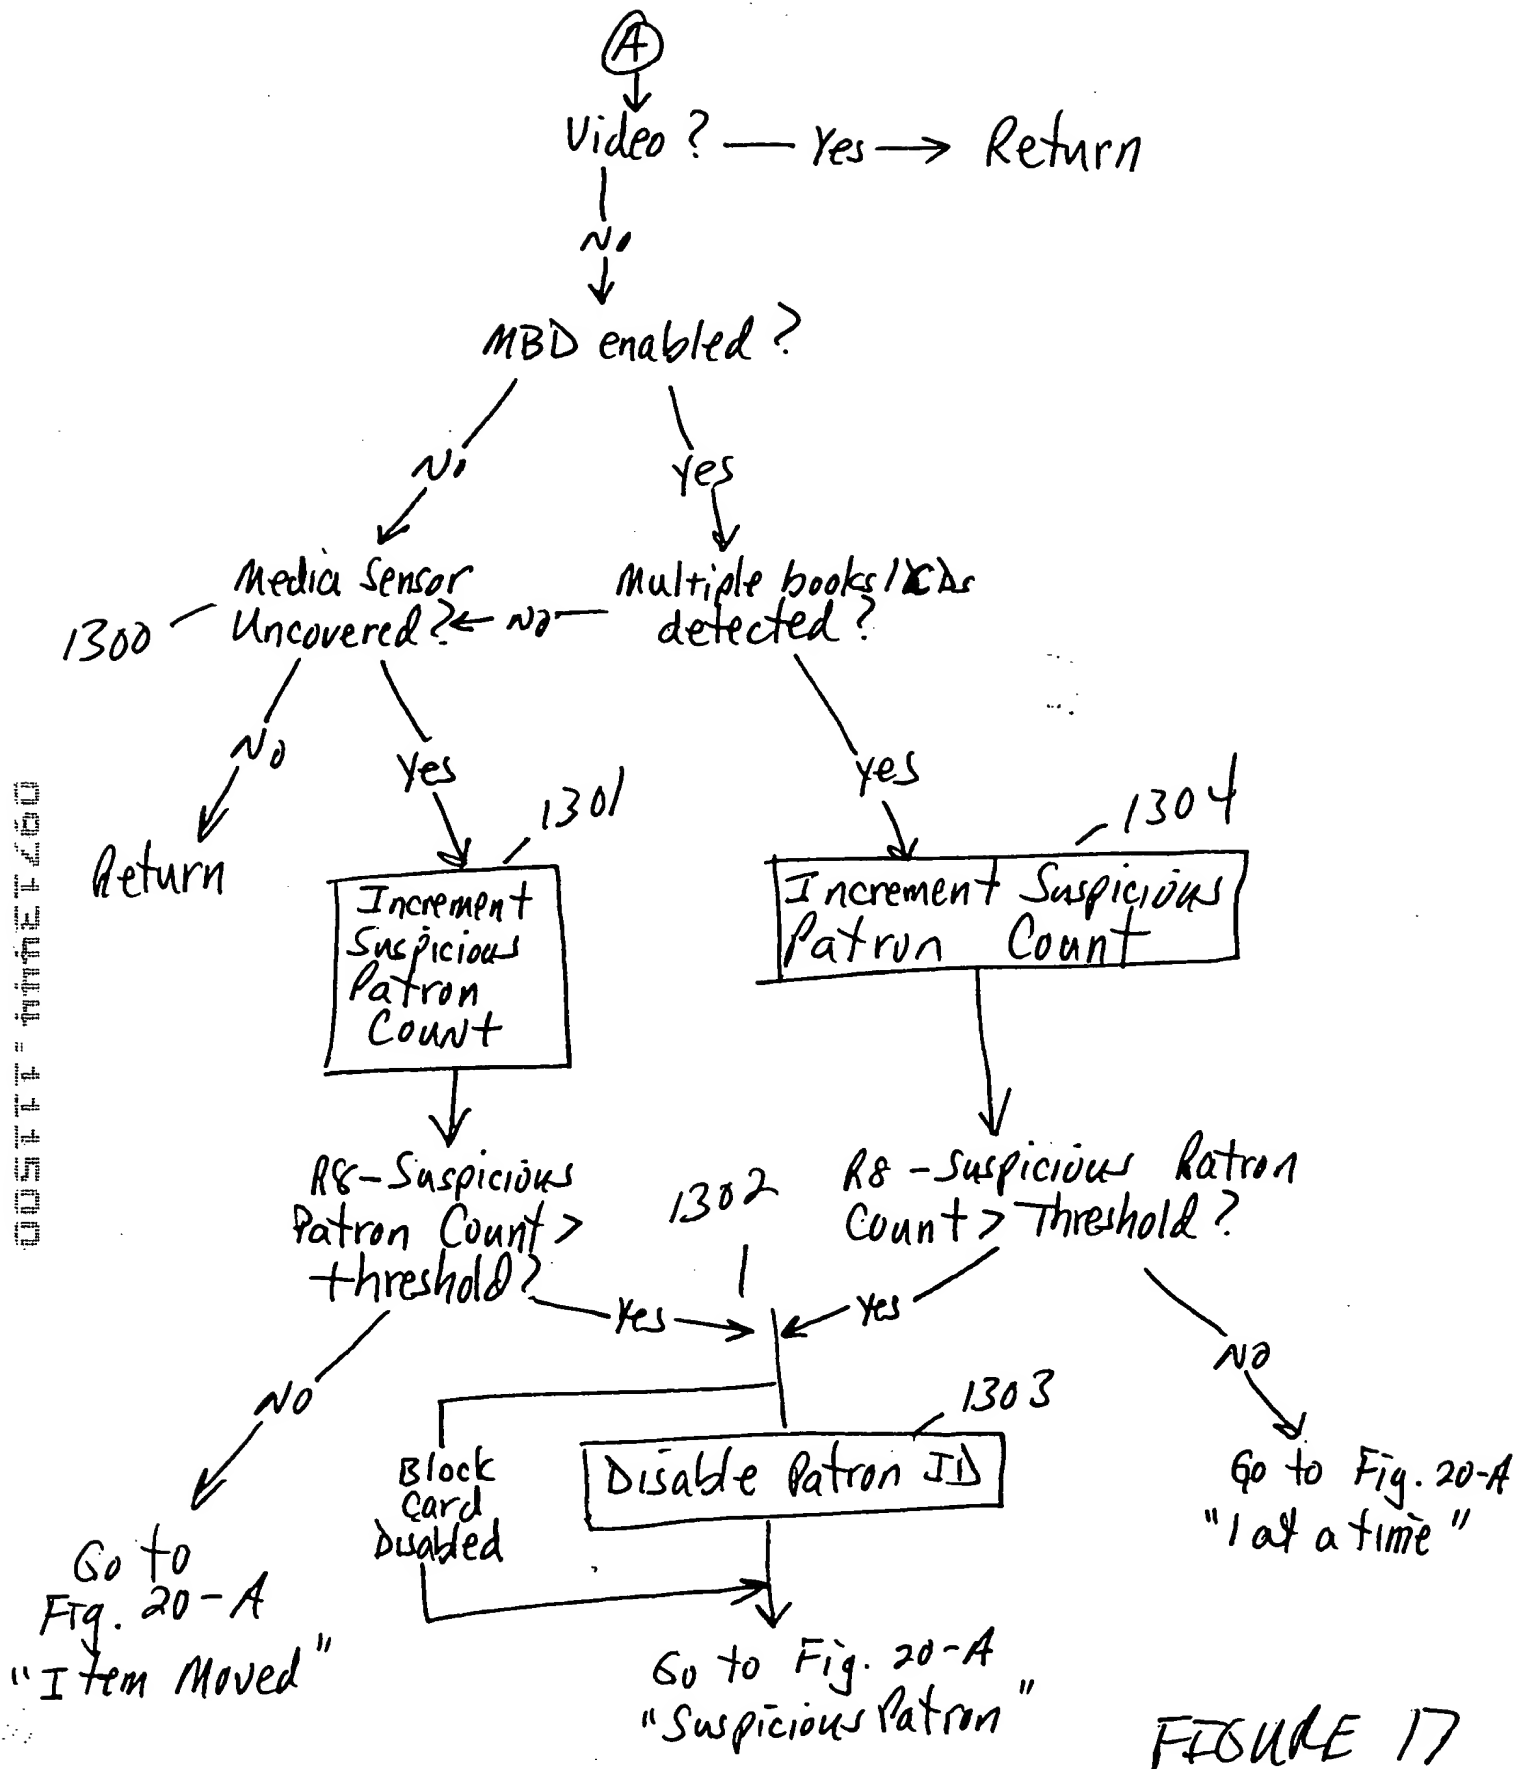 A
Video? — Yes → Return
No
MBD enabled?
No
Yes
Media Sensor
Uncovered?
1300
No
Multiple books/CDs
detected?
No
Yes
Yes
1301
1304
Return
Increment
Suspicious
Patron
Count
Increment Suspicious
Patron Count
R8-Suspicious
Patron Count >
threshold?
1302
R8-Suspicious Patron
Count > Threshold?
Yes
Yes
No
NO
1303
Block
Card
Disabled
Disable Patron ID
Go to Fig. 20-A
"1 at a time"
Go to
Fig. 20-A
"Item Moved"
Go to Fig. 20-A
"Suspicious Patron"
FIGURE 17